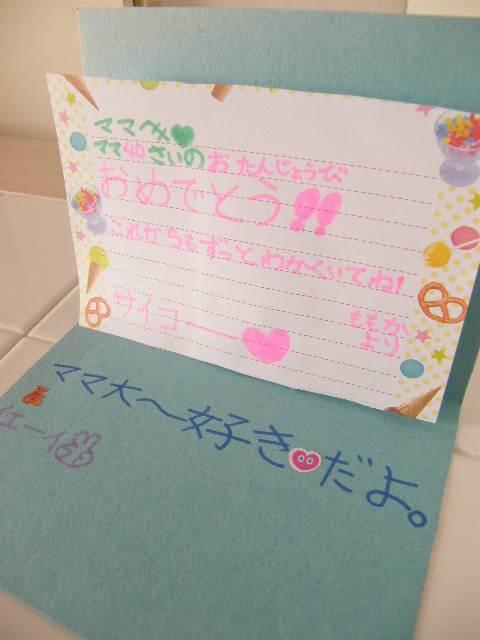 ママへ♥
ママ40さいのおたんじょうび
おめでとう!!
これからもずっとわかくいてね!
サイコー♥
ももか
より
ママ大〜好きだよ。
イエーイ